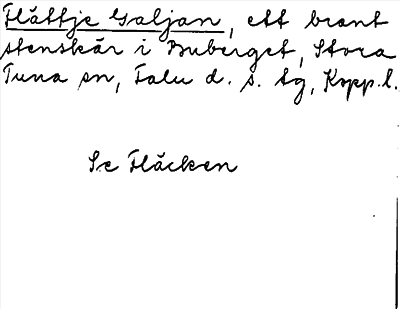 Flåttje Galjan, ett brant
stenskär i Buberget, Stora
Tuna sn, Falu d. s. tg, Kopp. l.
Se Flåcken